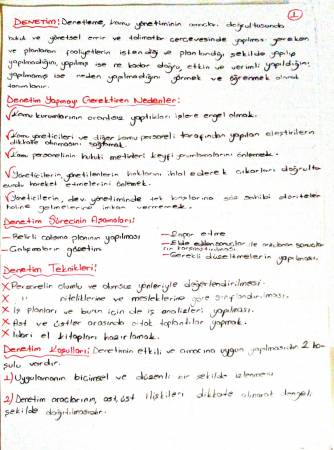 1
DENETİM: Denetleme, kamu yönetiminin amaçları doğrultusunda
hukuk ve yönetsel emir ve talimatlar çerçevesinde yapılması gereken
ve planlanan faaliyetlerin istendiği ve planlandığı şekilde yapılıp
yapılmadığını, yapılmış ise ne kadar doğru, etkin ve verimli yapıldığını,
yapılmamış ise neden yapılmadığını görmek ve öğrenmek olarak
tanımlanır.
Denetim Yapmayı Gerektiren Nedenler:
√ Kamu kurumlarının orantısız yaptıkları işlere engel olmak.
√ Kamu yöneticileri ve diğer kamu personeli tarafından yapılan eleştirilerin
dikkate alınmasını sağlamak.
√ Kamu personelinin hukuki metinleri keyfi yorumlamalarını önlemek.
√ Yöneticilerin, yönetilenlerin haklarını ihlal ederek çıkarları doğrultu-
sunda hareket etmelerini önlemek.
√ Yöneticilerin, dev. yönetiminde tek başlarına söz sahibi otoriteler
haline gelmelerine imkan vermemek.
Denetim Sürecinin Aşamaları:
— Belirli çalışma planının yapılması
— Çalışmaların gözetimi
— Rapor etme
— Elde edilen sonuçlar ile amaçlanan sonuçla-
rın karşılaştırılması
— Gerekli düzeltmelerin yapılması.
Denetim Teknikleri:
X Personelin olumlu ve olumsuz yönleriyle değerlendirilmesi.
X " niteliklerine ve mesleklerine göre sınıflandırılması.
X İş planları ve bunun için de iş analizleri yapılması.
X Ast ve üstler arasında ortak toplantılar yapmak.
X İdari el kitapları hazırlamak.
Denetim Koşulları: Denetimin etkili ve amacına uygun yapılmasıdır 2 ko-
şulu vardır.
1) Uygulamanın biçimsel ve düzenli bir şekilde izlenmesi
2) Denetim araçlarının, ast, üst ilişkileri dikkate alınarak dengeli
şekilde dağıtılmasıdır.